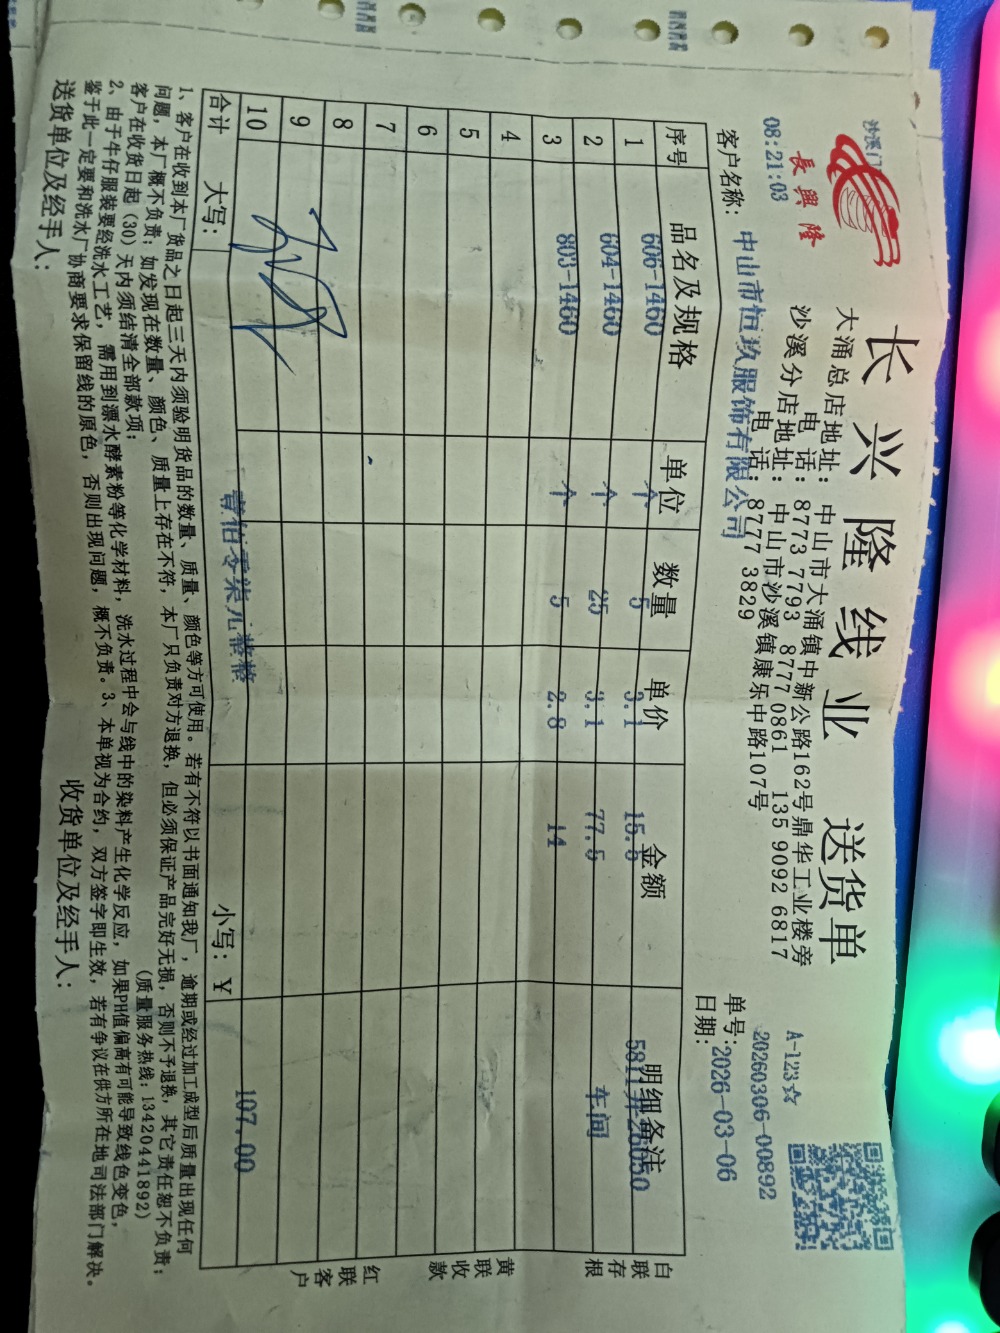 沙溪门
長興隆
长兴隆线业 送货单
大涌总店地址：中山市大涌镇中新公路162号鼎华工业楼旁
电 话：8773 7793 8777 0861 135 9092 6817
沙溪分店地址：中山市沙溪镇康乐中路107号
电 话：8777 3829
A-123☆
08:21:03
单号：20260306-00892
客户名称：中山市恒玖服饰有限公司
日期：2026-03-06
序号 品名及规格 单位 数量 单价 金额 明细备注
1 606-1460 个 5 3.1 15.5
2 604-1460 个 25 3.1 77.5 车间
3 803-1460 个 5 2.8 14
4
5
6
7
8
9
10
合计 大写：壹佰零柒元整 小写：￥ 107.00
白联存根
黄联收款
红联客户
1、客户在收到本厂货品之日起三天内须验明货品的数量、质量、颜色等方可使用。若有不符以书面通知我厂，逾期或经过加工成型后质量出现任何
问题，本厂概不负责；如发现在数量、颜色、质量上存在不符，本厂只负责对方退换，但必须保证产品完好无损，否则不予退换，其它责任恕不负责；
客户在收货日起（30）天内须结清全部款项； （质量服务热线：13420441892）
2、由于牛仔服装要经洗水工艺，需用到漂水酵素粉等化学材料，洗水过程中会与线中的染料产生化学反应，如果PH值偏高有可能导致线色变色，
鉴于此一定要和洗水厂协商要求保留线的原色，否则出现问题，概不负责。3、本单视为合约，双方签字即生效，若有争议在供方所在地司法部门解决。
送货单位及经手人： 收货单位及经手人：